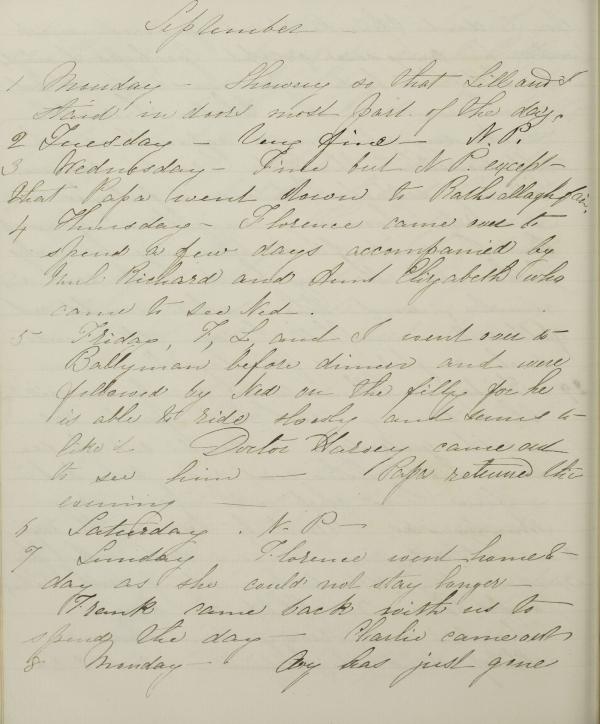 September —
1 Monday — Showery so that Lill and I
staid in doors most part of the day.
2 Tuesday — Very fine — N.P.
3 Wednesday — Fine but N P. except
that Papa went down to Rathsallagh fair.
4 Thursday — Florence came over to
spend a few days accompanied by
Uncl. Richard and Aunt Elizabeth who
came to see Ned.
5 Friday, F, L and I went over to
Ballyman before dinner and were
followed by Ned on the filly for he
is able to ride slowly and seems to
like it Doctor Harvey came out
to see him — Papa returned this
evening —
6 Saturday. N. P —
7 Sunday Florence went home to
day as she could not stay longer —
Frank came back with us to
spend the day — Charlie came out
8 Monday — has just gone